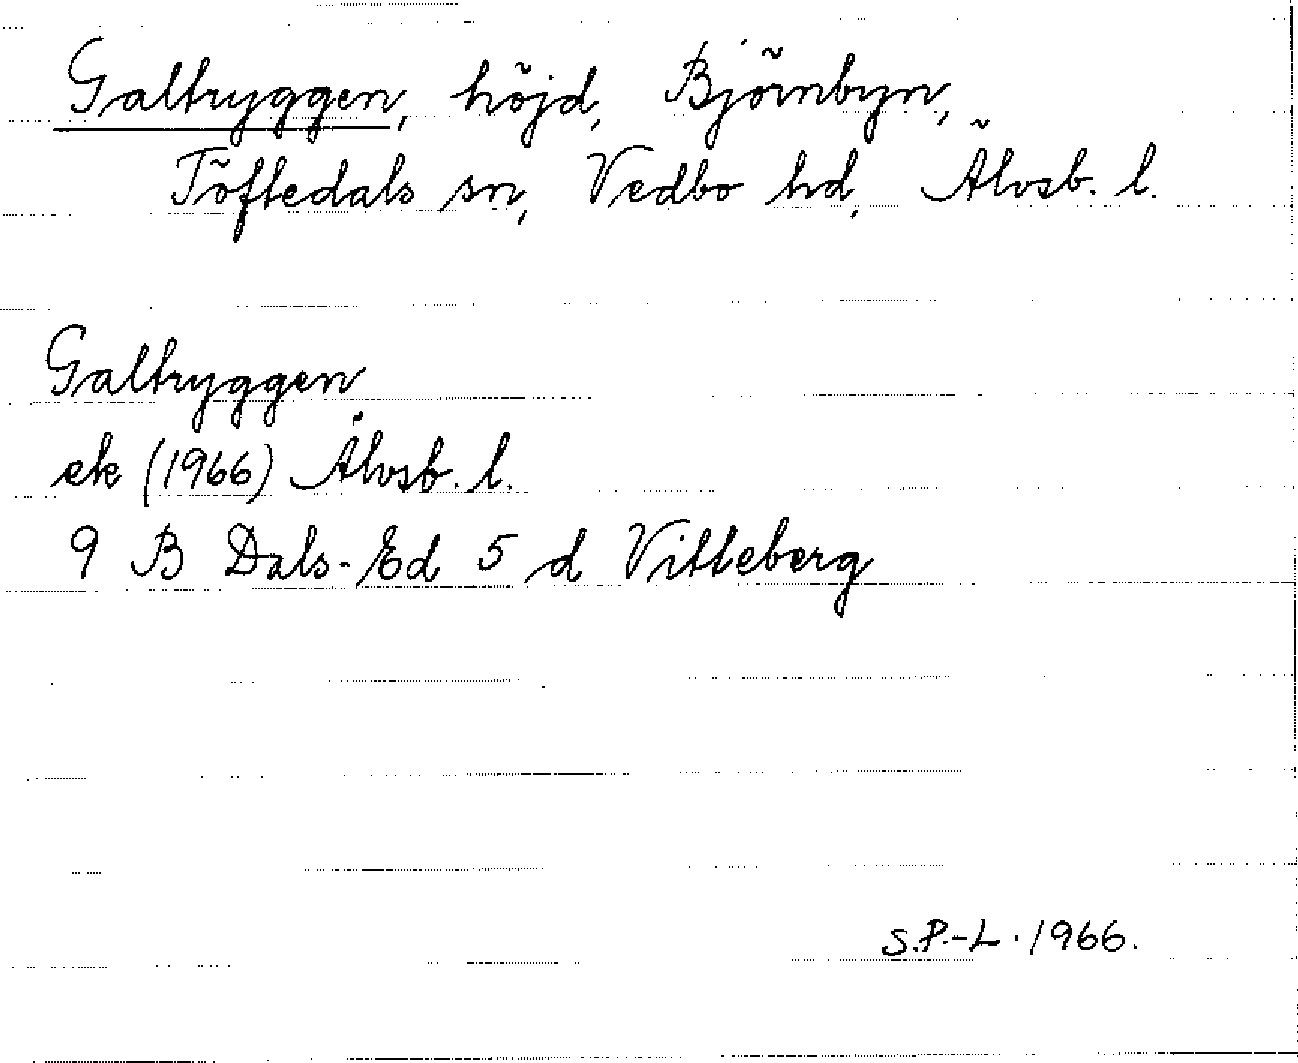 Galtryggen, höjd, Björnbyn,
Töftedals sn, Vedbo hd, Älvsb. l.
Galtryggen
ek (1966) Älvsb. l.
9 B Dals-Ed 5 d Vitteberg
S.P.-L. 1966.